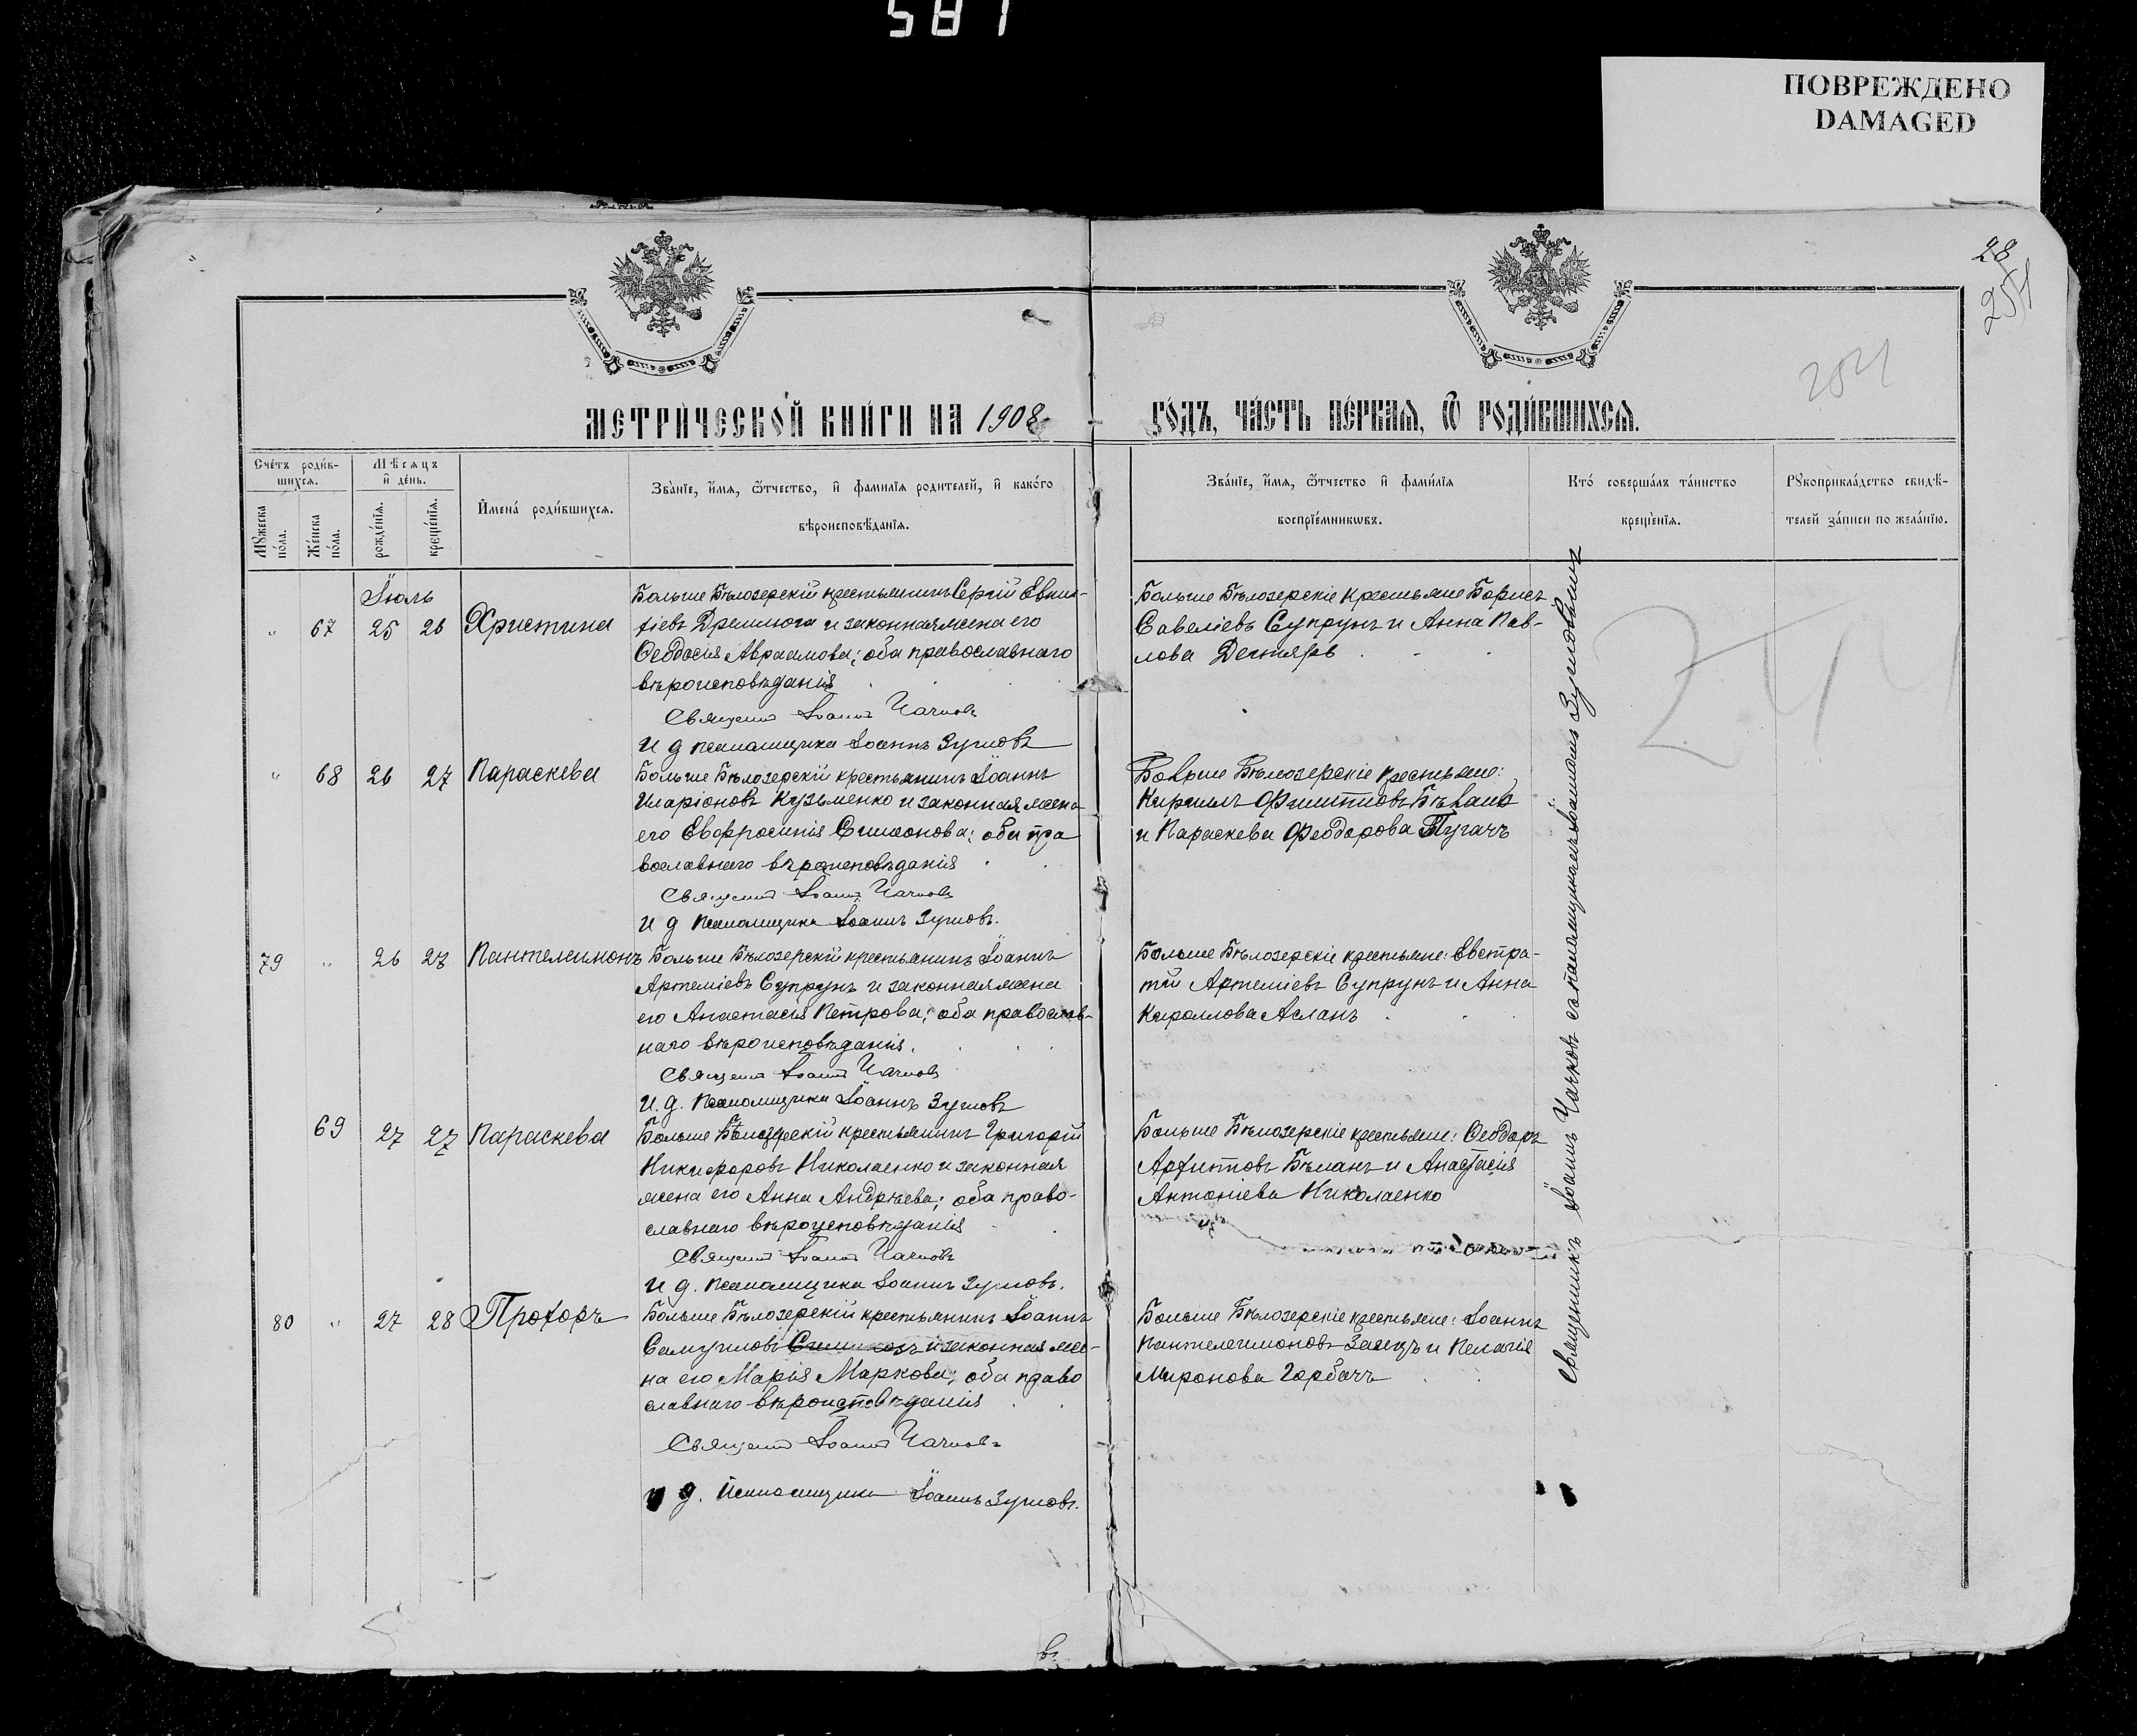 185
ПОВРЕЖДЕНО
DAMAGED
28
254
204
МЕТРИ́ЧЕСКОЙ КНИ́ГИ НА 1908
ГО́ДЪ, ЧА́СТЬ ПЕ́РВАЯ, Ѿ РОДИ́ВШИХСЯ.
Сче́тъ роди́в-
шихся.
Мѣсяцъ
и҆ де́нь.
Мꙋжеска
по́ла.
Же́нска
по́ла.
рожде́нїя.
креще́нїя.
И҆мена́ роди́вшихся.
Зва́нїе, и҆́мя, ѻ҆́тчество, и҆ фами́лїя родителей, и҆ како́го
вѣроисповѣ́данїя.
Зва́нїе, и҆́мя, ѻ҆́тчество и҆ фами́лїя
воспрїе́мникѡвъ.
Кто́ соверша́лъ та́инство
креще́нїя.
Рꙋкоприкла́дство свидѣ́-
телей за́писи по жела́нїю.
Іюль
" 67 25 26 Христина
Больше Бѣлозерскій крестьянинъ Сергій Евти-
хіевъ Дремлюга и законная жена его
Ѳеодосія Авраамова; оба православнаго
вѣроисповѣданія
Священ Іоаннъ Чачковъ
И д псаломщика Іоаннъ Зуиловъ
Больше Бѣлозерскіе крестьяне Борисъ
Савеліевъ Супрунъ и Анна Пав-
лова Дегтярь
" 68 26 27 Параскева
Больше Бѣлозерскій крестьянинъ Іоаннъ
Иларіоновъ Кузьменко и законная жена
его Евфросинія Симеонова; оба пра
вославнаго вѣроисповѣданія
Священ Іоаннъ Чачковъ
И д псаломщика Іоаннъ Зуиловъ.
Больше Бѣлозерскіе крестьяне:
Кириллъ Филипповъ Бѣланъ
и Параскева Феодорова Пугачъ
79 " 26 27 Пантелеимонъ
Больше Бѣлозерскій крестьянинъ Іоаннъ
Артеміевъ Супрунъ и законная жена
его Анастасія Петрова; оба православ-
наго вѣроисповѣданія.
Священ Іоаннъ Чачковъ
И. д. псаломщика Іоаннъ Зуиловъ
Больше Бѣлозерскіе крестьяне: Евстра-
тій Артеміевъ Супрунъ и Анна
Кириллова Асланъ
69 27 27 Параскева
Больше Бѣлозерскій крестьянинъ Григорій
Никифоровъ Николаенко и законная
жена его Анна Андрѣева; оба право-
славнаго вѣроисповѣданія
Священ Іоаннъ Чачковъ
И д. псаломщика Іоаннъ Зуиловъ.
Больше Бѣлозерскіе крестьяне: Ѳеодоръ
Архиповъ Бѣланъ и Анастасія
Антоніева Николаенко
80 " 27 28 Прохоръ
Больше Бѣлозерскій крестьянинъ Іоаннъ
Самуиловъ и законная же-
на его Марія Маркова; оба право
славнаго вѣроисповѣданія
Священ Іоаннъ Чачковъ
И д. псаломщика Іоаннъ Зуиловъ.
Больше Бѣлозерскіе крестьяне: Іоаннъ
Пантелеимоновъ Заяцъ и Пелагія
Миронова Горбачъ
Священникъ Іоаннъ Чачковъ съ псаломщикомъ Іоанномъ Зуиловымъ